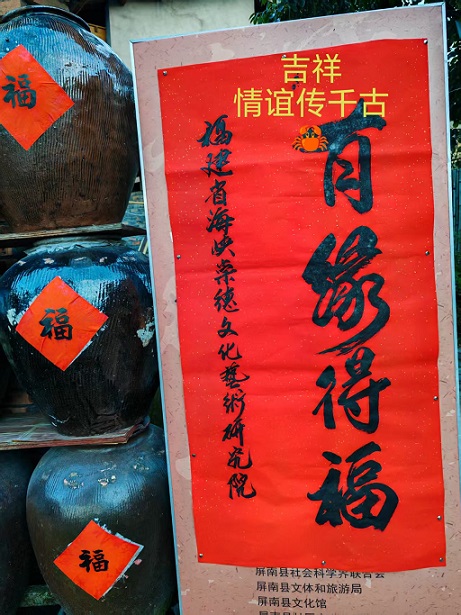 吉祥
情谊传千古
有缘得福
福建省海峡崇德文化藝術研究院
福
福
福
屏南县社会科学界联合会
屏南县文体和旅游局
屏南县文化馆